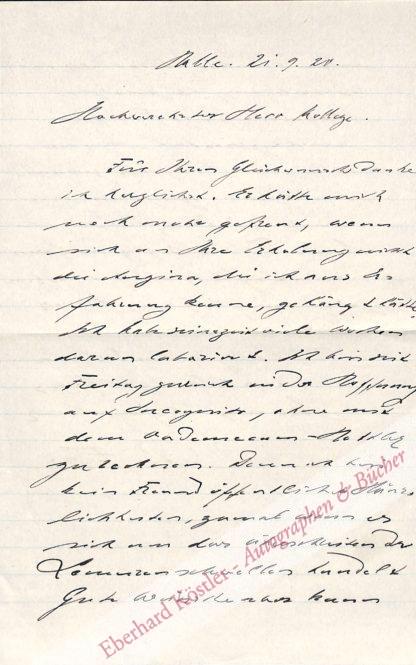 Halle. 21. 9. 20.
Hochverehrter Herr Kollege.
Für Ihren Glückwunsch danke
ich herzlichst. Er hätte mich
noch mehr gefreut, wenn
sich an Ihre Erholung nicht
die Angina, die ich aus Er-
fahrung kenne, gehängt hätte.
Ich habe seinerzeit viele Wochen
daran laboriert. Ich bin seit
Freitag zurück in der Hoffnung
auf Incognito, ohne mit
dem
zu rechnen. Denn ich bin
kein Freund öffentlicher
lichkeiten, zumal wenn es
sich um das Überschreiten der
handelt
Gute
Eberhard Köstler - Autographen & Bücher